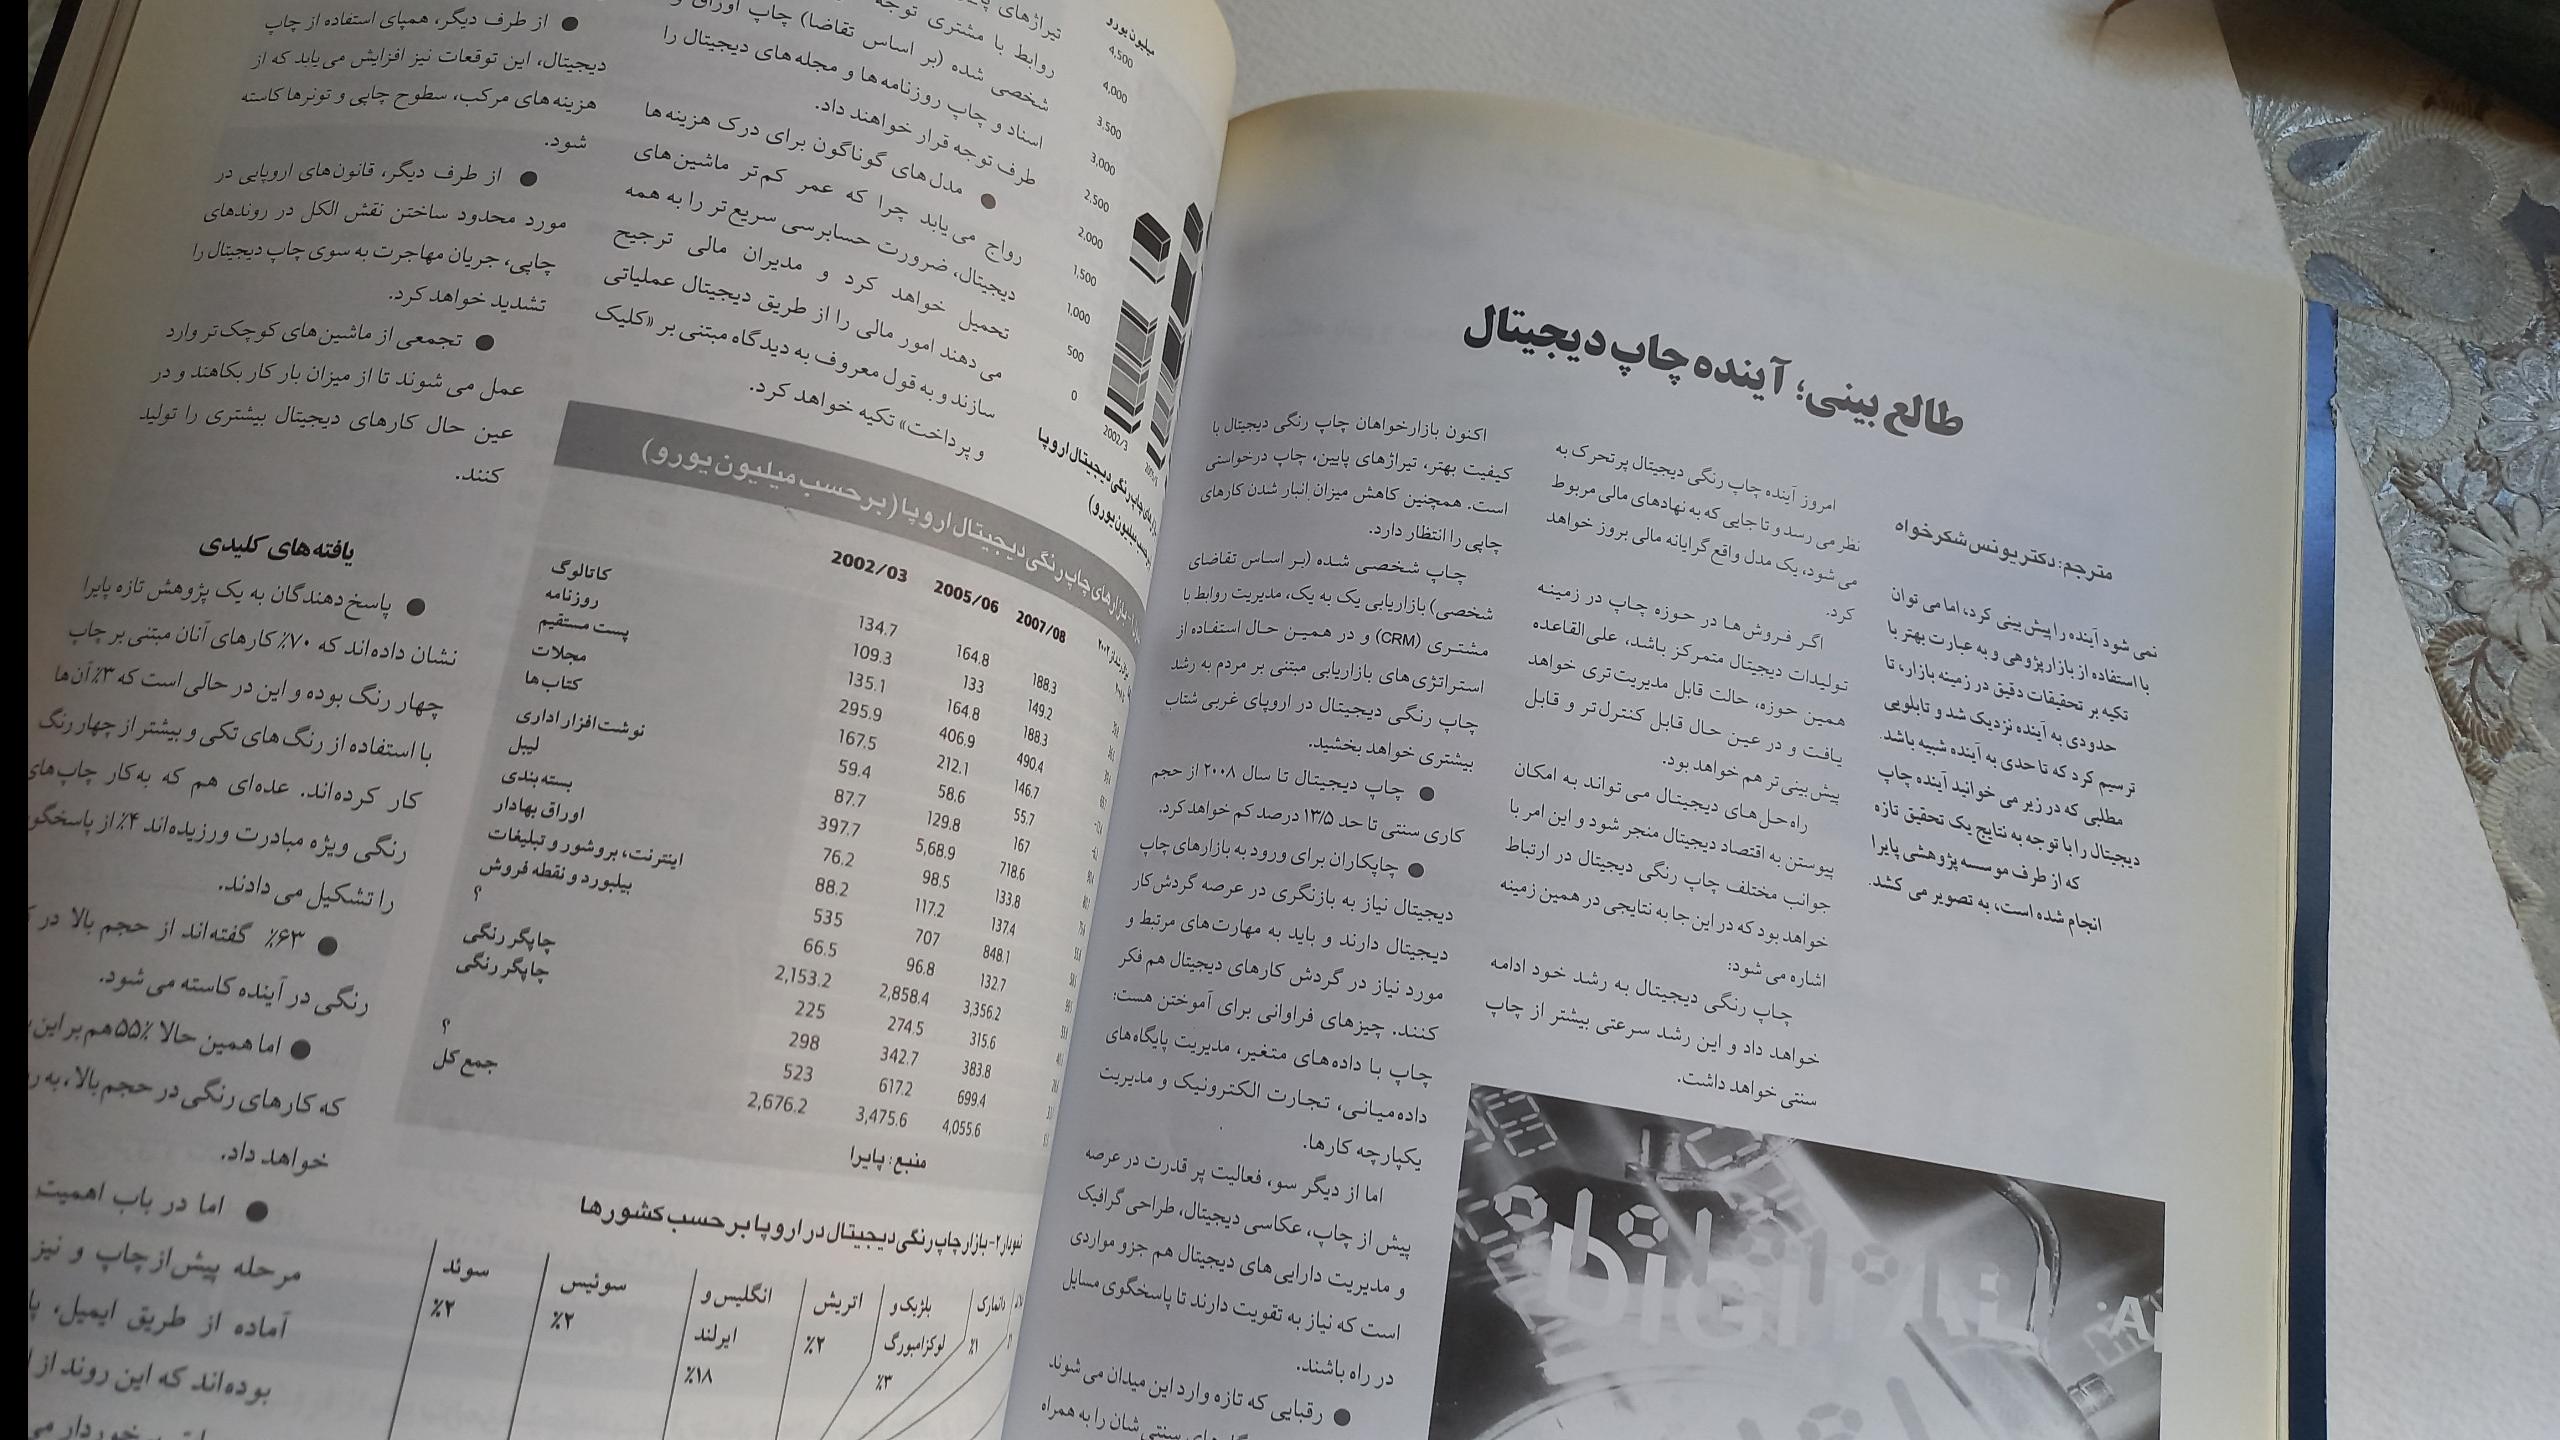 طالع بینی؛ آینده چاپ دیجیتال
مترجم: دکتر یونس شکرخواه
نمی شود آینده را پیش بینی کرد، اما می توان
با استفاده از بازارپژوهی و به عبارت بهتر با
تکیه بر تحقیقات دقیق در زمینه بازار، تا
حدودی به آینده نزدیک شد و تابلویی
ترسیم کرد که تا حدی به آینده شبیه باشد.
مطلبی که در زیر می خوانید آینده چاپ
دیجیتال را با توجه به نتایج یک تحقیق تازه
که از طرف موسسه پژوهشی پایرا
انجام شده است، به تصویر می کشد.
امروز آینده چاپ رنگی دیجیتال پرتحرک به
نظر می رسد و تا جایی که به نهادهای مالی مربوط
می شود، یک مدل واقع گرایانه مالی بروز خواهد
کرد.
اگر فروش‌ها در حوزه چاپ در زمینه
تولیدات دیجیتال متمرکز باشد، علی‌القاعده
همین حوزه، حالت قابل مدیریت‌تری خواهد
یافت و در عین حال قابل کنترل‌تر و قابل
پیش‌بینی‌تر هم خواهد بود.
راه‌حل‌های دیجیتال می تواند به امکان
پیوستن به اقتصاد دیجیتال منجر شود و این امر با
جوانب مختلف چاپ رنگی دیجیتال در ارتباط
خواهد بود که در این جا به نتایجی در همین زمینه
اشاره می شود:
چاپ رنگی دیجیتال به رشد خود ادامه
خواهد داد و این رشد سرعتی بیشتر از چاپ
سنتی خواهد داشت.
DIGITAL
اکنون بازارخواهان چاپ رنگی دیجیتال با
کیفیت بهتر، تیراژهای پایین، چاپ درخواستی
است. همچنین کاهش میزان انبار شدن کارهای
چاپی را انتظار دارد.
چاپ شخصی شده (بر اساس تقاضای
شخصی) بازاریابی یک به یک، مدیریت روابط با
مشتری (CRM) و در همین حال استفاده از
استراتژی‌های بازاریابی مبتنی بر مردم به رشد
چاپ رنگی دیجیتال در اروپای غربی شتاب
بیشتری خواهد بخشید.
● چاپ دیجیتال تا سال ۲۰۰۸ از حجم
کاری سنتی تا حد ۱۳/۵ درصد کم خواهد کرد.
● چاپکاران برای ورود به بازارهای چاپ
دیجیتال نیاز به بازنگری در عرصه گردش کار
دیجیتال دارند و باید به مهارت‌های مرتبط و
مورد نیاز در گردش کارهای دیجیتال هم فکر
کنند. چیزهای فراوانی برای آموختن هست:
چاپ با داده‌های متغیر، مدیریت پایگاه‌های
داده‌میانی، تجارت الکترونیک و مدیریت
یکپارچه کارها.
اما از دیگر سو، فعالیت پر قدرت در عرصه
پیش از چاپ، عکاسی دیجیتال، طراحی گرافیک
و مدیریت دارایی‌های دیجیتال هم جزو مواردی
است که نیاز به تقویت دارند تا پاسخگوی مسایل
در راه باشند.
● رقبایی که تازه وارد این میدان می شوند
سنتی شان را به همراه
میلیون یورو
4,500
4,000
3,500
3,000
2,500
2,000
1,500
1,000
500
0
2002/3
چاپ رنگی دیجیتال اروپا
تیراژهای
روابط با مشتری توجه
شخصی شده (بر اساس تقاضا) چاپ اوراق و
اسناد و چاپ روزنامه‌ها و مجله‌های دیجیتال را
طرف توجه قرار خواهند داد.
● مدل‌های گوناگون برای درک هزینه‌ها
رواج می‌یابد چرا که عمر کم‌تر ماشین‌های
دیجیتال، ضرورت حسابرسی سریع تر را به همه
تحمیل خواهد کرد و مدیران مالی ترجیح
می دهند امور مالی را از طریق دیجیتال عملیاتی
سازند و به قول معروف به دیدگاه مبتنی بر «کلیک
و پرداخت» تکیه خواهد کرد.
بازارهای چاپ رنگی دیجیتال اروپا (بر حسب میلیون یورو)
2002/03 2005/06 2007/08
کاتالوگ
روزنامه
پست مستقیم
مجلات
کتاب‌ها
نوشت افزار اداری
لیبل
بسته بندی
اوراق بهادار
اینترنت، بروشور و تبلیغات
بیلبورد و نقطه فروش
؟
چاپگر رنگی
چاپگر رنگی
؟
جمع کل
134.7 164.8 188.3
109.3 133 149.2
135.1 164.8 188.3
295.9 406.9 490.4
167.5 212.1 146.7
59.4 58.6 55.7
87.7 129.8 167
397.7 5,68.9 718.6
76.2 98.5 133.8
88.2 117.2 137.4
535 707 848.1
66.5 96.8 132.7
2,153.2 2,858.4 3,356.2
225 274.5 315.6
298 342.7 383.8
523 617.2 699.4
2,676.2 3,475.6 4,055.6
منبع: پایرا
نمودار ۲- بازار چاپ رنگی دیجیتال در اروپا بر حسب کشورها
دانمارک
٪۱
بلژیک و
لوکزامبورگ
٪۳
اتریش
٪۲
انگلیس و
ایرلند
٪۱۸
سوئیس
٪۲
سوئد
٪۲
● از طرف دیگر، همپای استفاده از چاپ
دیجیتال، این توقعات نیز افزایش می‌یابد که از
هزینه‌های مرکب، سطوح چاپی و تونرها کاسته
شود.
● از طرف دیگر، قانون‌های اروپایی در
مورد محدود ساختن نقش الکل در روندهای
چاپی، جریان مهاجرت به سوی چاپ دیجیتال را
تشدید خواهد کرد.
● تجمعی از ماشین‌های کوچک‌تر وارد
عمل می شوند تا از میزان بار کار بکاهند و در
عین حال کارهای دیجیتال بیشتری را تولید
کنند.
یافته‌های کلیدی
● پاسخ دهندگان به یک پژوهش تازه پایرا
نشان داده‌اند که ۷۰٪ کارهای آنان مبتنی بر چاپ
چهار رنگ بوده و این در حالی است که ۳٪ آن‌ها
با استفاده از رنگ‌های تکی و بیشتر از چهار رنگ
کار کرده‌اند. عده‌ای هم که به‌کار چاپ‌های
رنگی ویژه مبادرت ورزیده‌اند ۴٪ از
را تشکیل می دادند.
● ۶۳٪ گفته‌اند از حجم بالا در
رنگی در آینده کاسته می شود.
● اما همین حالا ۵۵٪ هم بر این
که کارهای رنگی در حجم بالا، به
خواهد داد.
● اما در باب اهمیت
مرحله پیش از چاپ و نیز
آماده از طریق ایمیل،
بوده‌اند که این روند از